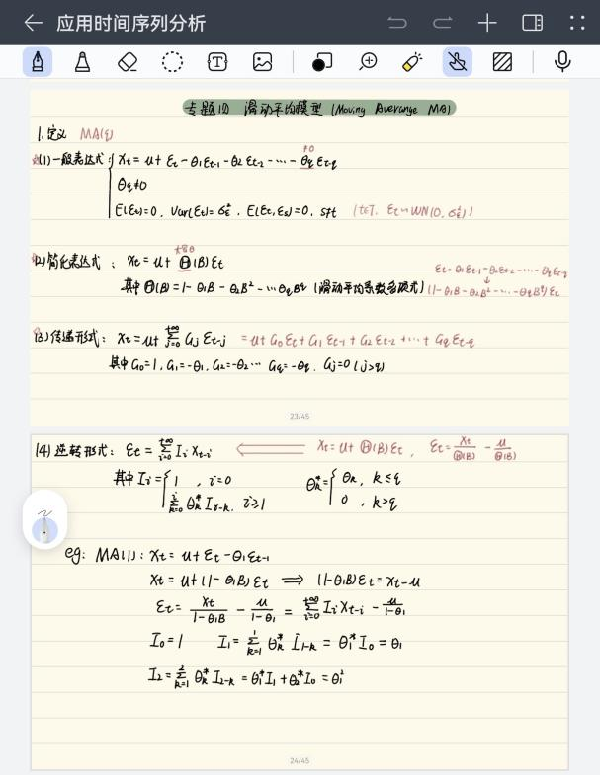 应用时间序列分析
专题四 滑动平均模型 (Moving Average MA)
1.定义 MA(q)
(1)一般表达式: Xt = u + εt - θ1εt-1 - θ2εt-2 - ... - θqεt-q
≠0
θq≠0
E(εt)=0, Var(εt)=σε², E(εtεs)=0, s≠t (t∈T, εt~WN(0, σε²))
(2)简化表达式: Xt = u + Θ(B)εt
大写θ
其中Θ(B) = 1 - θ1B - θ2B² - ...θqB^q (滑动平均系数多项式)
εt - θ1εt-1 - θ2εt-2 - ... - θqεt-q
↓
(1 - θ1B - θ2B² - ... - θqB^q)εt
(3)传递形式: Xt = u + Σ(j=0,+∞) Gj εt-j = u + G0εt + G1εt-1 + G2εt-2 + ... + Gqεt-q
其中G0=1, G1=-θ1, G2=-θ2... Gq=-θq, Gj=0 (j>q)
23:45
(4)逆转形式: εt = Σ(i=0,+∞) Ii Xt-i ⇐ Xt = u + Θ(B)εt, εt = Xt/Θ(B) - u/Θ(B)
其中Ii = { 1, i=0
Σ(k=0,i) θk* Ii-k, i≥1
θk* = { θk, k≤q
0, k>q
eg: MA(1): Xt = u + εt - θ1εt-1
Xt = u + (1 - θ1B)εt ⟹ (1-θ1B)εt = Xt - u
εt = Xt/(1-θ1B) - u/(1-θ1) = Σ(i=0,+∞) Ii Xt-i - u/(1-θ1)
I0 = 1 I1 = Σ(k=1,1) θk* I1-k = θ1* I0 = θ1
I2 = Σ(k=1,2) θk* I2-k = θ1* I1 + θ2* I0 = θ1²
24:45